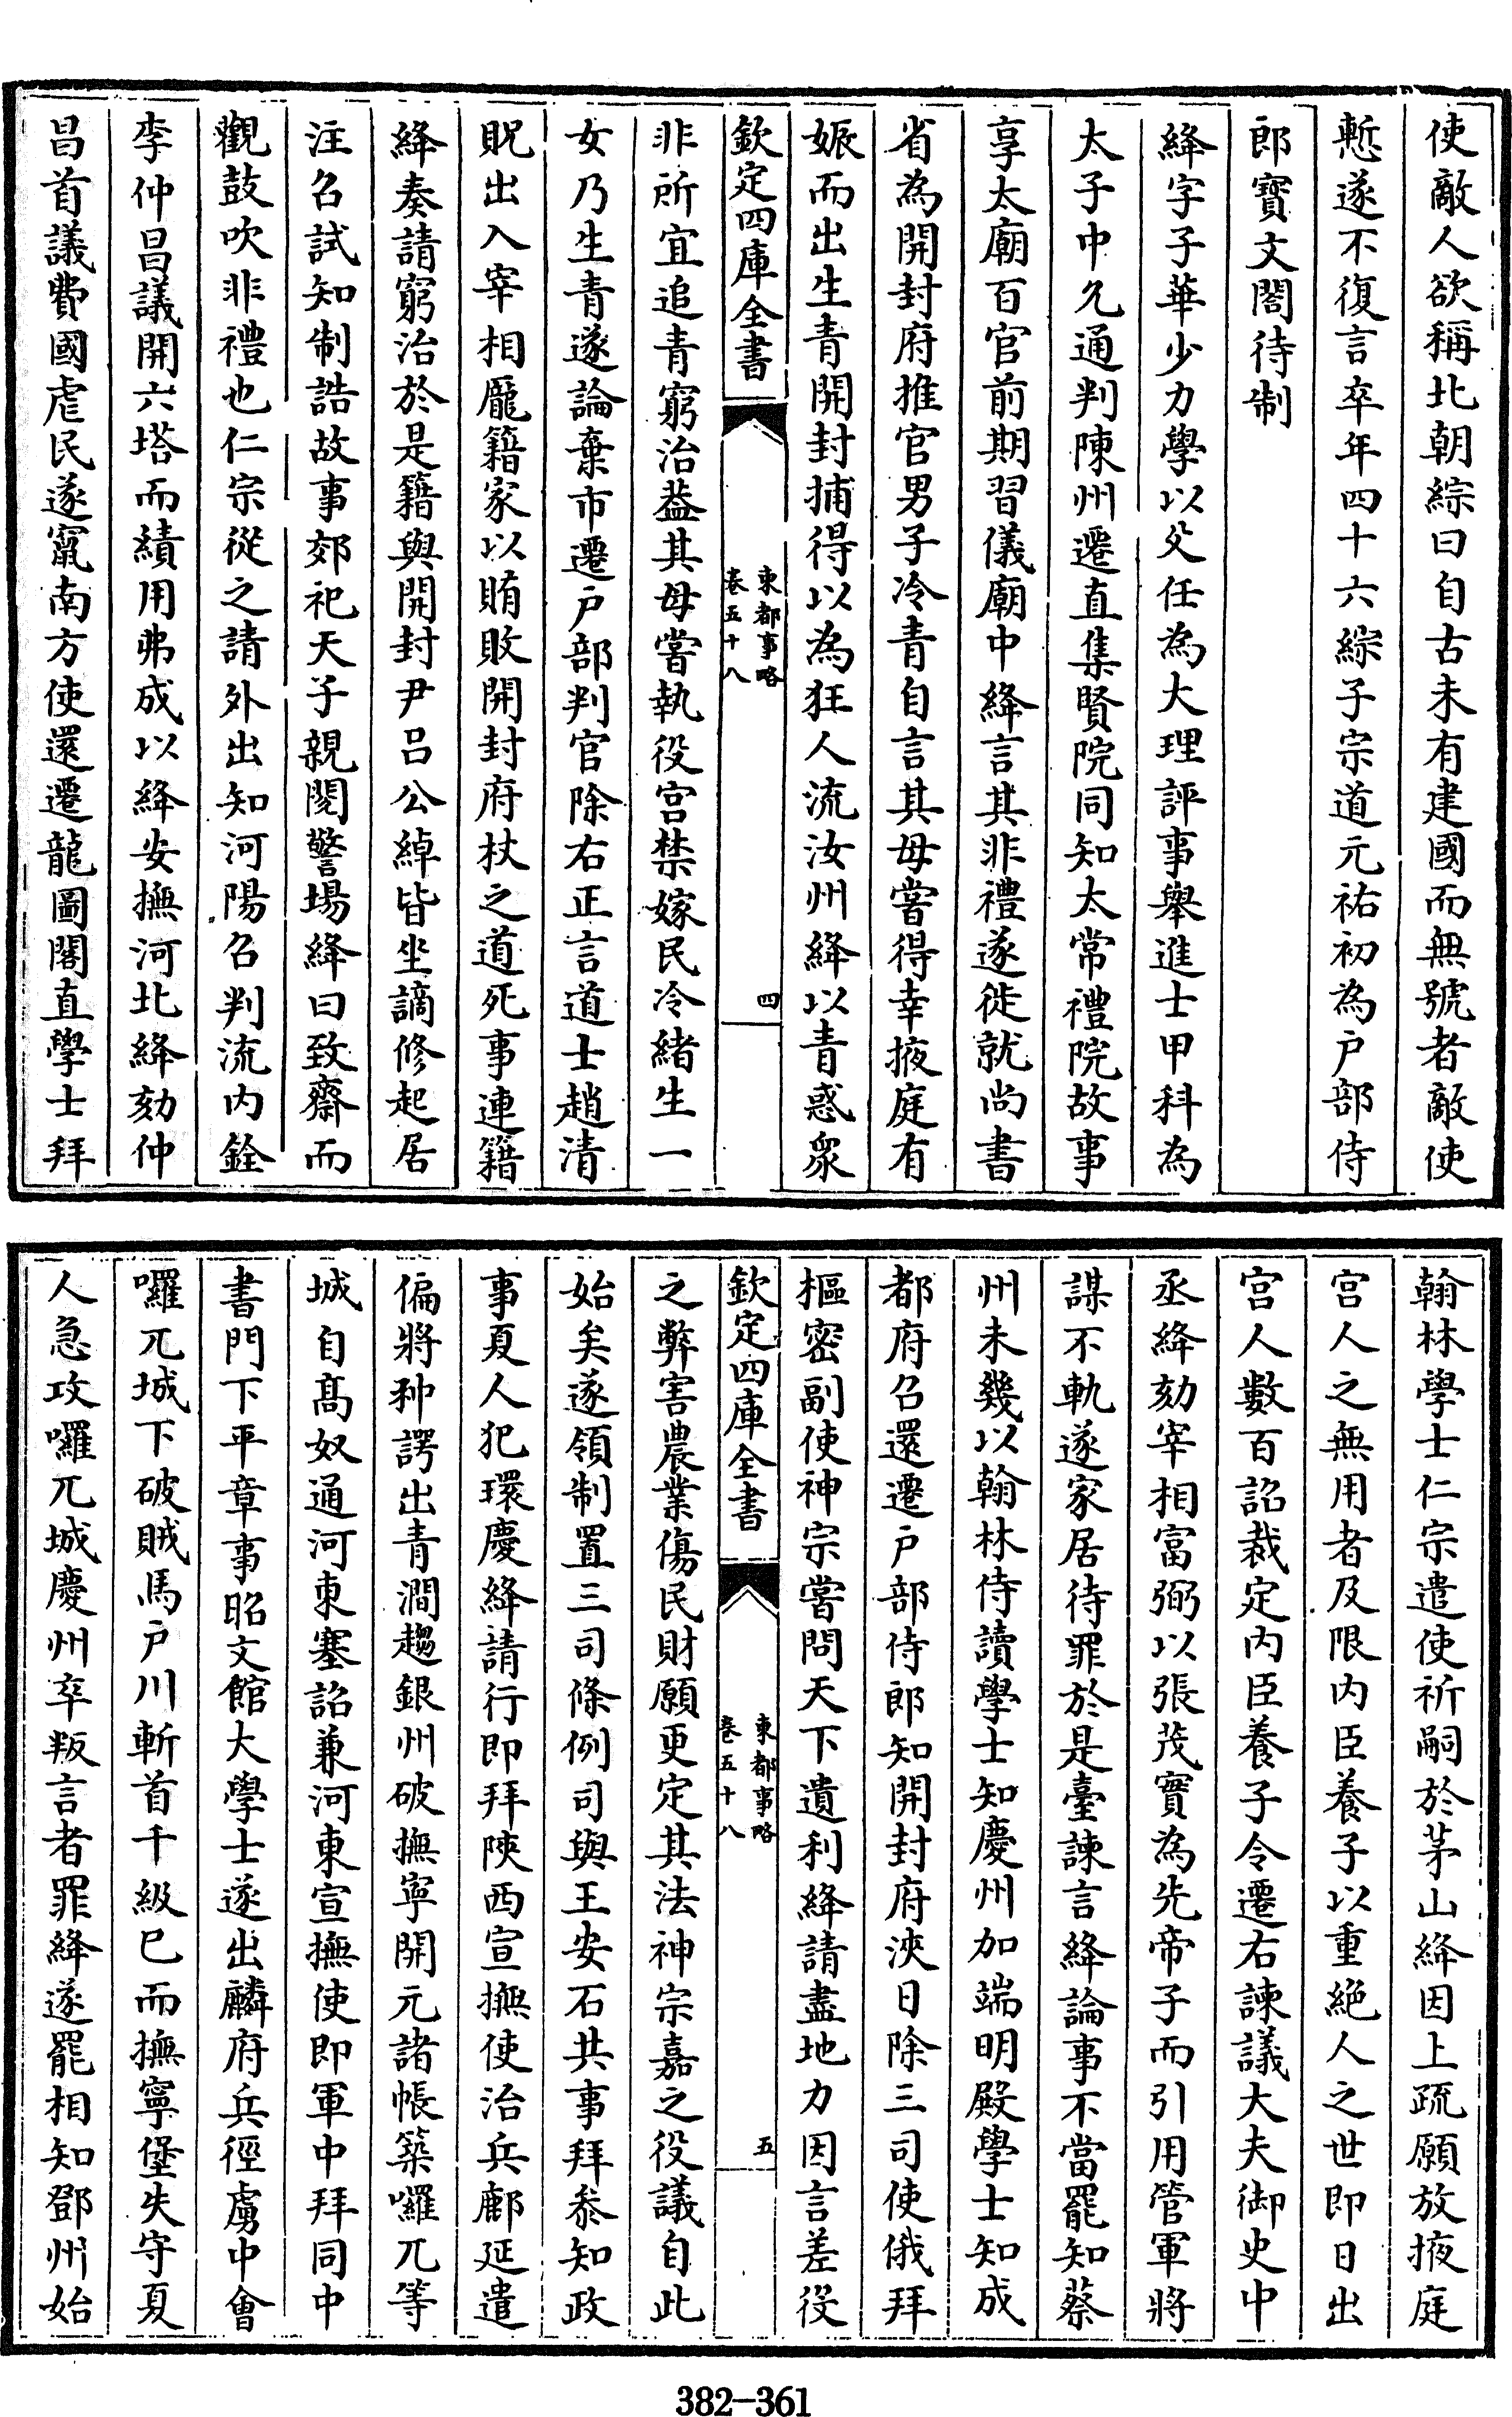 使敵人欲稱北朝綜曰自古未有建國而無號者敵使
慙遂不復言卒年四十六綜子宗道元祐初為户部侍
郎寶文閣待制
絳字子華少力學以父任為大理評事舉進士甲科為
太子中允通判陳州遷直集賢院同知太常禮院故事
享太廟百官前期習儀廟中絳言其非禮遂徙就尚書
省為開封府推官男子冷青自言其母嘗得幸掖庭有
娠而出生青開封捕得以為狂人流汝州絳以青惑衆
欽定四庫全書
東都事略
卷五十八
四
非所宜追青窮治葢其母嘗執役宫禁嫁民冷緒生一
女乃生青遂論棄市遷户部判官除右正言道士趙清
貺出入宰相龎籍家以賄敗開封府杖之道死事連籍
絳奏請窮治於是籍與開封尹吕公綽皆坐謫修起居
注召試知制誥故事郊祀天子親閲警場絳曰致齋而
觀鼓吹非禮也仁宗從之請外出知河陽召判流内銓
李仲昌議開六塔而績用弗成以絳安撫河北絳劾仲
昌首議費國虐民遂竄南方使還遷龍圖閣直學士拜
翰林學士仁宗遣使祈嗣於茅山絳因上疏願放掖庭
宫人之無用者及限内臣養子以重絶人之世即日出
宫人數百詔裁定内臣養子令遷右諫議大夫御史中
丞絳劾宰相富弼以張茂實為先帝子而引用管軍將
謀不軌遂家居待罪於是臺諫言絳論事不當罷知蔡
州未幾以翰林侍讀學士知慶州加端明殿學士知成
都府召還遷户部侍郎知開封府浹日除三司使俄拜
樞密副使神宗嘗問天下遺利絳請盡地力因言差役
欽定四庫全書
東都事略
卷五十八
五
之弊害農業傷民財願更定其法神宗嘉之役議自此
始矣遂領制置三司條例司與王安石共事拜叅知政
事夏人犯環慶絳請行即拜陜西宣撫使治兵鄜延遣
偏將种諤出青澗趨銀州破撫寧開元諸帳築囉兀等
城自髙奴通河東塞詔兼河東宣撫使即軍中拜同中
書門下平章事昭文館大學士遂出麟府兵徑虜中會
囉兀城下破賊馬户川斬首千級已而撫寧堡失守夏
人急攻囉兀城慶州卒叛言者罪絳遂罷相知鄧州始
382-361